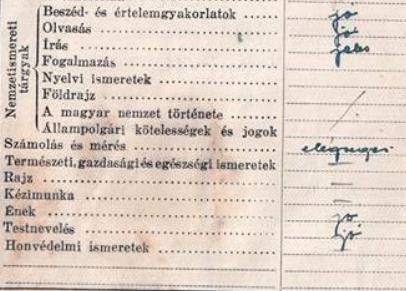 Nemzetismereti tárgyak
Beszéd- és értelemgyakorlatok jó
Olvasás jó
Írás jeles
Fogalmazás
Nyelvi ismeretek
Földrajz
A magyar nemzet története
Állampolgári kötelességek és jogok
Számolás és mérés elégséges
Természeti, gazdasági és egészségi ismeretek
Rajz
Kézimunka
Ének jó
Testnevelés jó
Honvédelmi ismeretek